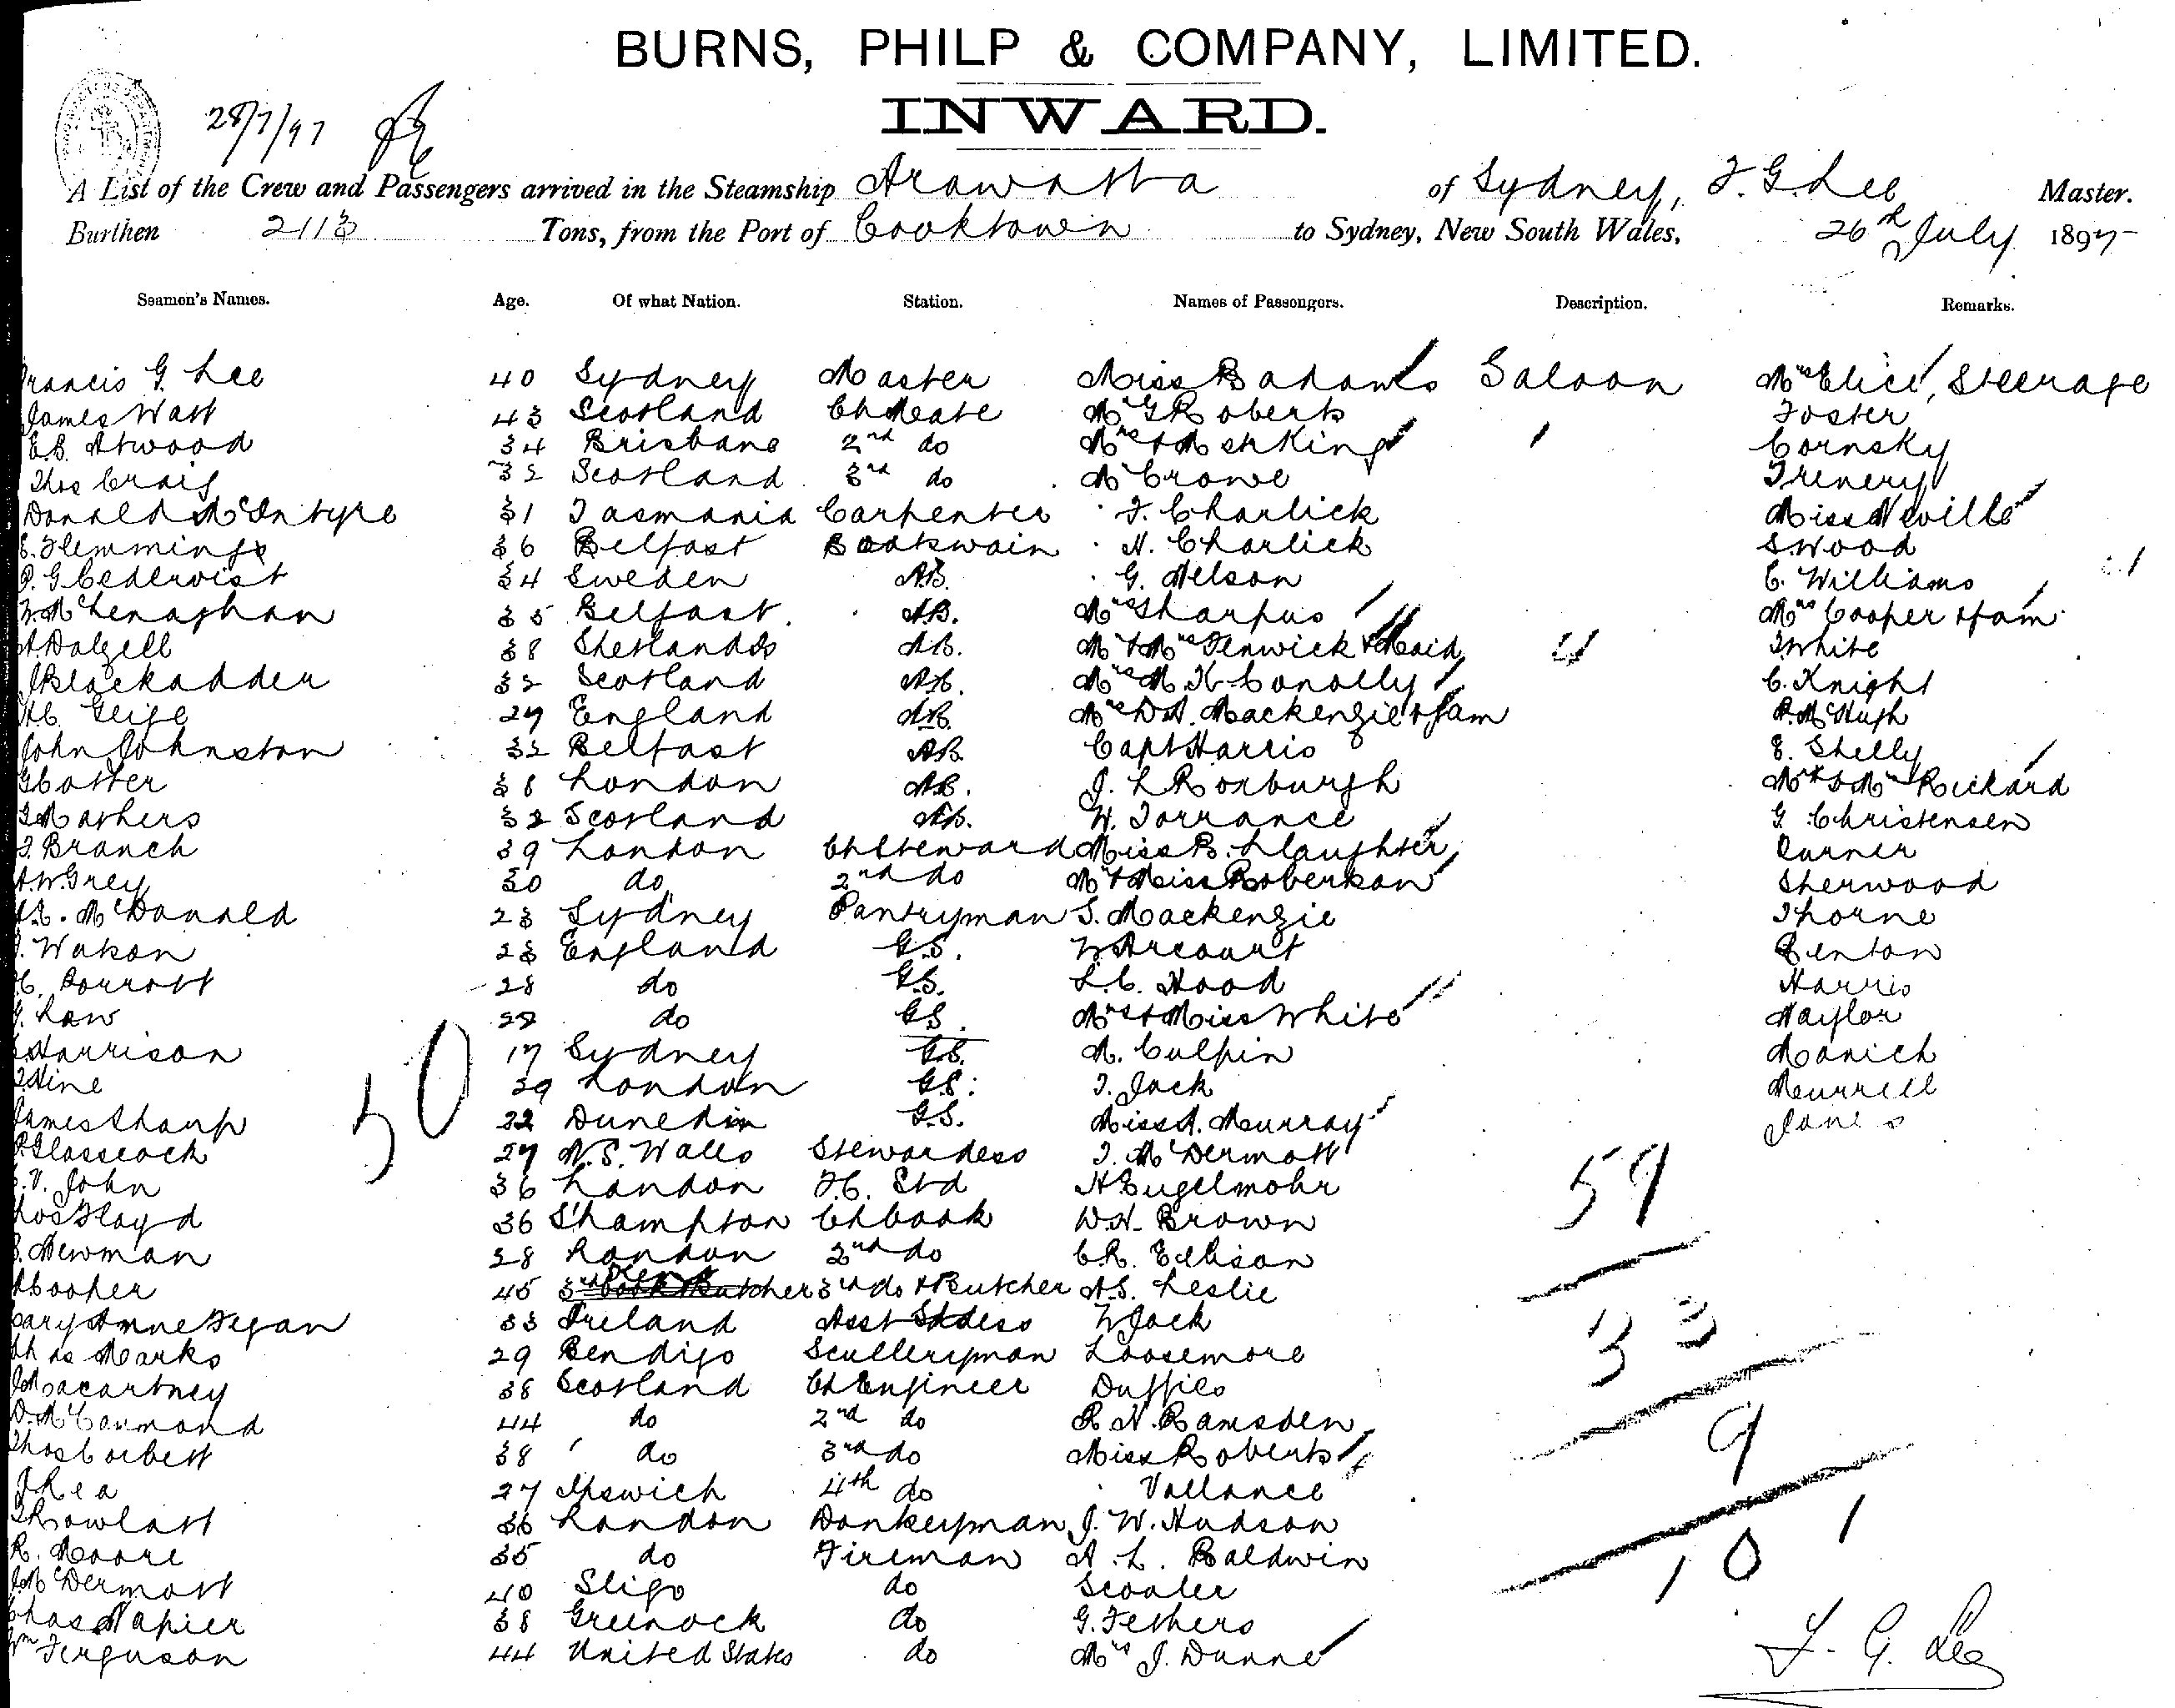 BURNS, PHILP & COMPANY, LIMITED.
INWARD.
28/7/97
A List of the Crew and Passengers arrived in the Steamship Arawatta of Sydney, F. G. Lee Master.
Burthen 2118 Tons, from the Port of Cooktown to Sydney, New South Wales, 26th July 1897
Seamen's Names. Age. Of what Nation. Station. Names of Passengers. Description. Remarks.
Francis G. Lee 40 Sydney Master Miss Badams Saloon Mrs Elice, Steerage
James Watt 43 Scotland Ch Mate Mr G Roberts Foster
E.B. Atwood 34 Brisbane 2nd do Mrs & M King Cornsky
Thos Craig 32 Scotland 3rd do Mr Crowe Trenery
Donald McIntyre 31 Tasmania Carpenter F. Charlick Miss Neville
Flemming 36 Belfast Boatswain H. Charlick S Wood
G Cedervist 34 Sweden A.B. G. Nelson C. Williams
McLenaghan 35 Belfast A.B. Mrs Sharpus Mrs Cooper & fam
Dalzell 38 Shetlands A.B. Mr & Mrs Fenwick & Maid J White
J Blackadder 32 Scotland A.B. Mrs M. K. Conolly C. Knight
27 England A.B. Mrs D.A. Mackenzie & fam P. McHugh
John Johnston 32 Belfast A.B. Capt Harris E. Shelly
G Cotter 38 London A.B. J. L Roxburgh Mr & Mrs Rickard
Mathers 32 Scotland A.B. W. Torrance G Christensen
J. Branch 39 London Ch Steward Miss B. Slaughter Turner
A.W. Grey 30 do 2nd do Mr & Miss Roberkson Sherwood
McDonald 23 Sydney Pantryman S. Mackenzie Thorne
Watson 23 England G.S. W Arcourt Benton
C. Porrott 28 do G.S. L.C. Hood Harris
G. Law 22 do G.S. Mrs & Miss White Naylor
Harrison 17 Sydney G.S. M. Culpin Monich
Hine 29 London G.S. J. Jack Meurrell
James Sharp 50 22 Dunedin G.S. Miss A. Murray Jones
Glasscock 27 N.S. Wales Stewardess J. McDermott
V. John 36 London F.C. Std H Eugelmohr 59
Thos Floyd 36 S'hampton Ch Cook W.H. Brown
Newman 28 London 2nd do C.R. Edkison
A Cooper 45 3rd do & Butcher A.S. Leslie
Mary Anne Fegan 33 Ireland Asst Stdess W Jack 33
Chas Marks 29 Bendigo Sculleryman Loosemore
J Macartney 38 Scotland Ch Engineer Duffies
D. McCormond 44 do 2nd do R. N. Ramsden 9
Thos Corbett 38 do 3rd do Miss Roberts
J Rea 27 Ipswich 4th do Vallance
J Rowlatt 36 London Donkeyman J. W. Hudson 101
R. Moore 35 do Fireman A. L. Baldwin
J McDermott 40 Sligo do Scooler
Chas Napier 38 Greenock do G. Fethers
Wm Ferguson 44 United States do Mrs J. Dunne
F. G. Lee